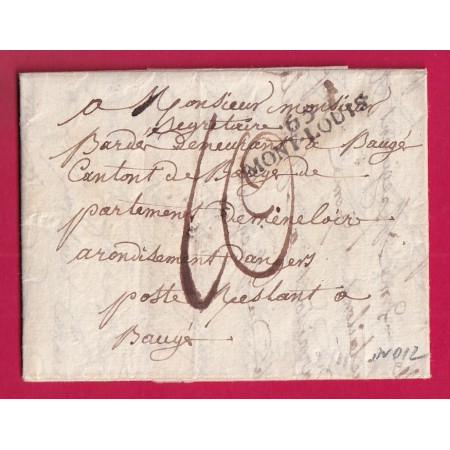 a Monsieur monsieur
Segretaire
Bardé demeurant a Baugé
Cantont de Baugé de
partement de meneloir
arondisement dangers
poste Restant a
Baugé
65
MONT-LOUIS